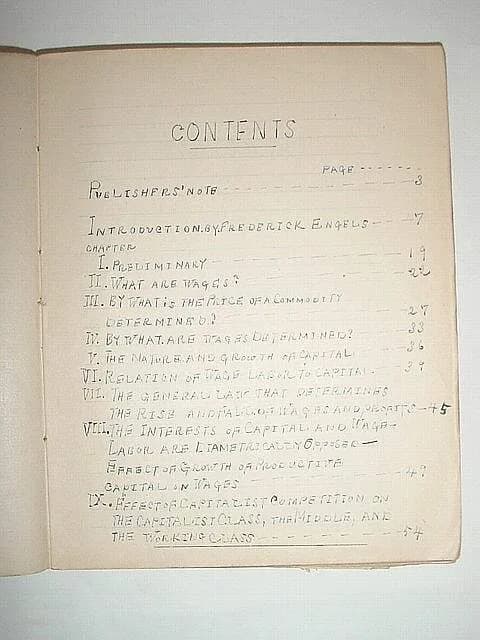 CONTENTS
PAGE
PUBLISHERS' NOTE 3
INTRODUCTION. BY. FREDERICK ENGELS 7
CHAPTER
I. PRELIMINARY 19
II. WHAT ARE WAGES? 22
III. BY WHAT iS THE PRICE OF A COMMODITY
DETERMINED? 27
IV. BY WHAT. ARE WAGES DETERMINED? 33
V. THE NATURE. AND GROWTH OF CAPITAL 36
VI. RELATION OF WAGE LABOR TO CAPITAL 39
VII. THE GENERAL LAW THAT DETERMINES
THE RISE AND FALL OF WAGES AND PROFITS 45
VIII. THE INTERESTS OF CAPITAL AND WAGE-
LABOR ARE DIAMETRICALLY OPPOSED—
EFFECT OF GROWTH OF PRODUCTIVE
CAPITAL ON WAGES 49
IX. EFFECT OF CAPITALIST COMPETITION ON
THE CAPITALIST CLASS, THE MIDDLE, AND
THE WORKING CLASS 54